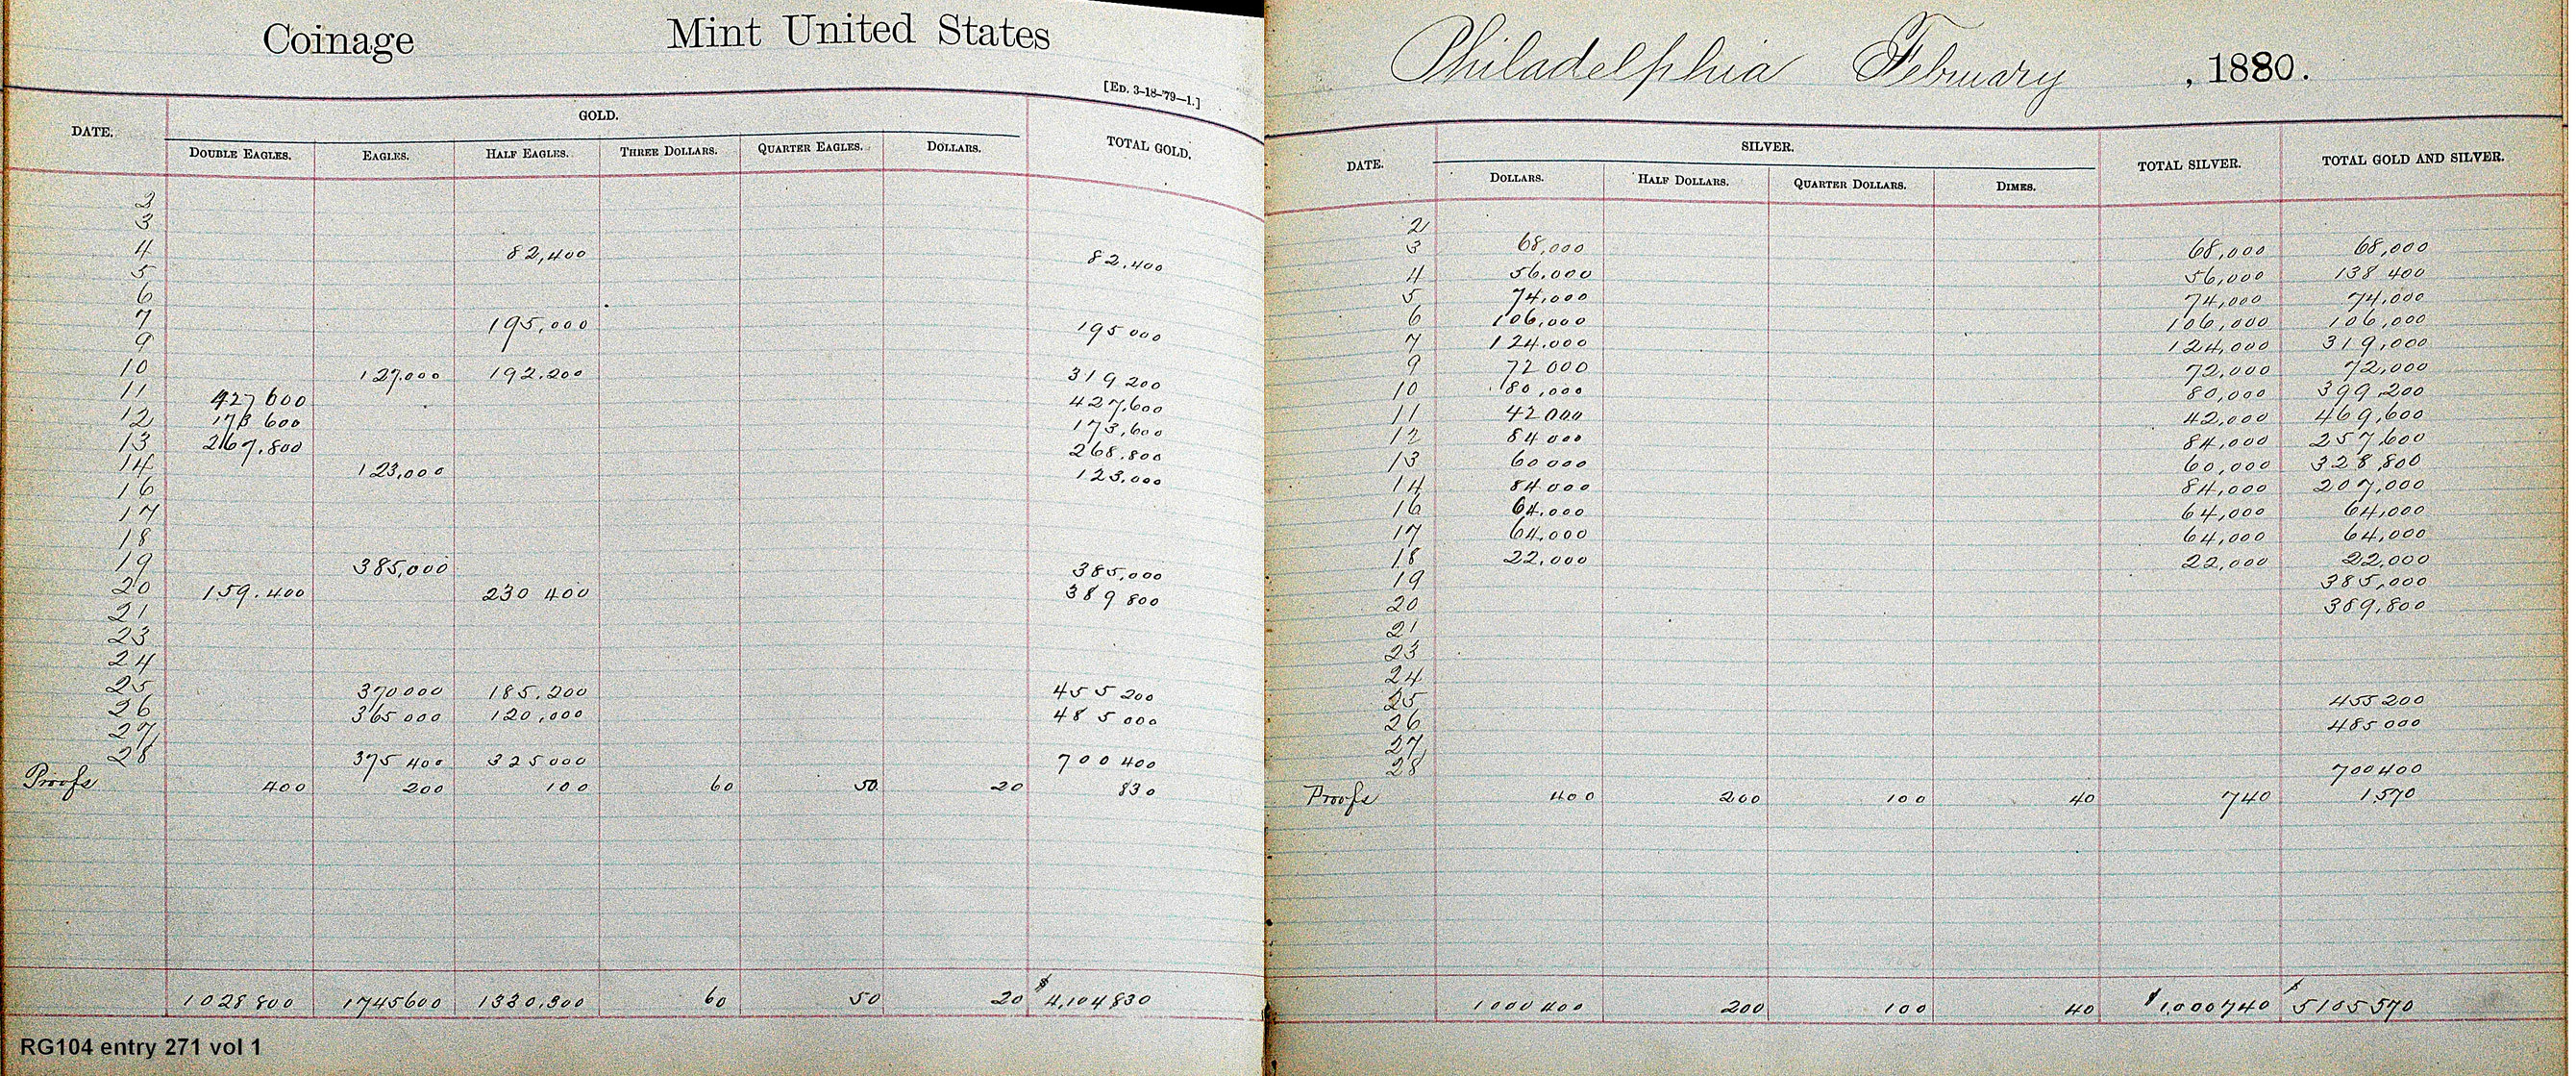 Coinage Mint United States
[Ed. 3-18-'79—1.]
DATE. GOLD. TOTAL GOLD.
Double Eagles. Eagles. Half Eagles. Three Dollars. Quarter Eagles. Dollars.
2
3
4 82,400 82,400
5
6
7 195,000 195 000
9
10 127,000 192.200 319 200
11 427 600 427,600
12 173 600 173,600
13 267,800 268,800
14 123,000 123,000
16
17
18
19 385,000 385,000
20 159.400 230 400 389 800
21
23
24
25 370000 185.200 455 200
26 365 000 120,000 485 000
27
28 375 400 325000 700 400
Proofs 400 200 100 60 50 20 830
1028 800 1745600 1330,300 60 50 20 $4,104830
RG104 entry 271 vol 1
Philadelphia February , 1880.
DATE. SILVER. TOTAL SILVER. TOTAL GOLD AND SILVER.
Dollars. Half Dollars. Quarter Dollars. Dimes.
2
3 68,000 68,000 68,000
4 56,000 56,000 138 400
5 74,000 74,000 74,000
6 106,000 106,000 106,000
7 124,000 124,000 319,000
9 72 000 72,000 72,000
10 80,000 80,000 399,200
11 42 000 42,000 469,600
12 84 000 84,000 257,600
13 60 000 60,000 328,800
14 84 000 84,000 207,000
16 64,000 64,000 64,000
17 64,000 64,000 64,000
18 22,000 22,000 22,000
19 385,000
20 389,800
21
23
24
25 455 200
26 485 000
27
28 700 400
Proofs 400 200 100 40 740 1,570
1000 400 200 100 40 $1,000740 $5105570